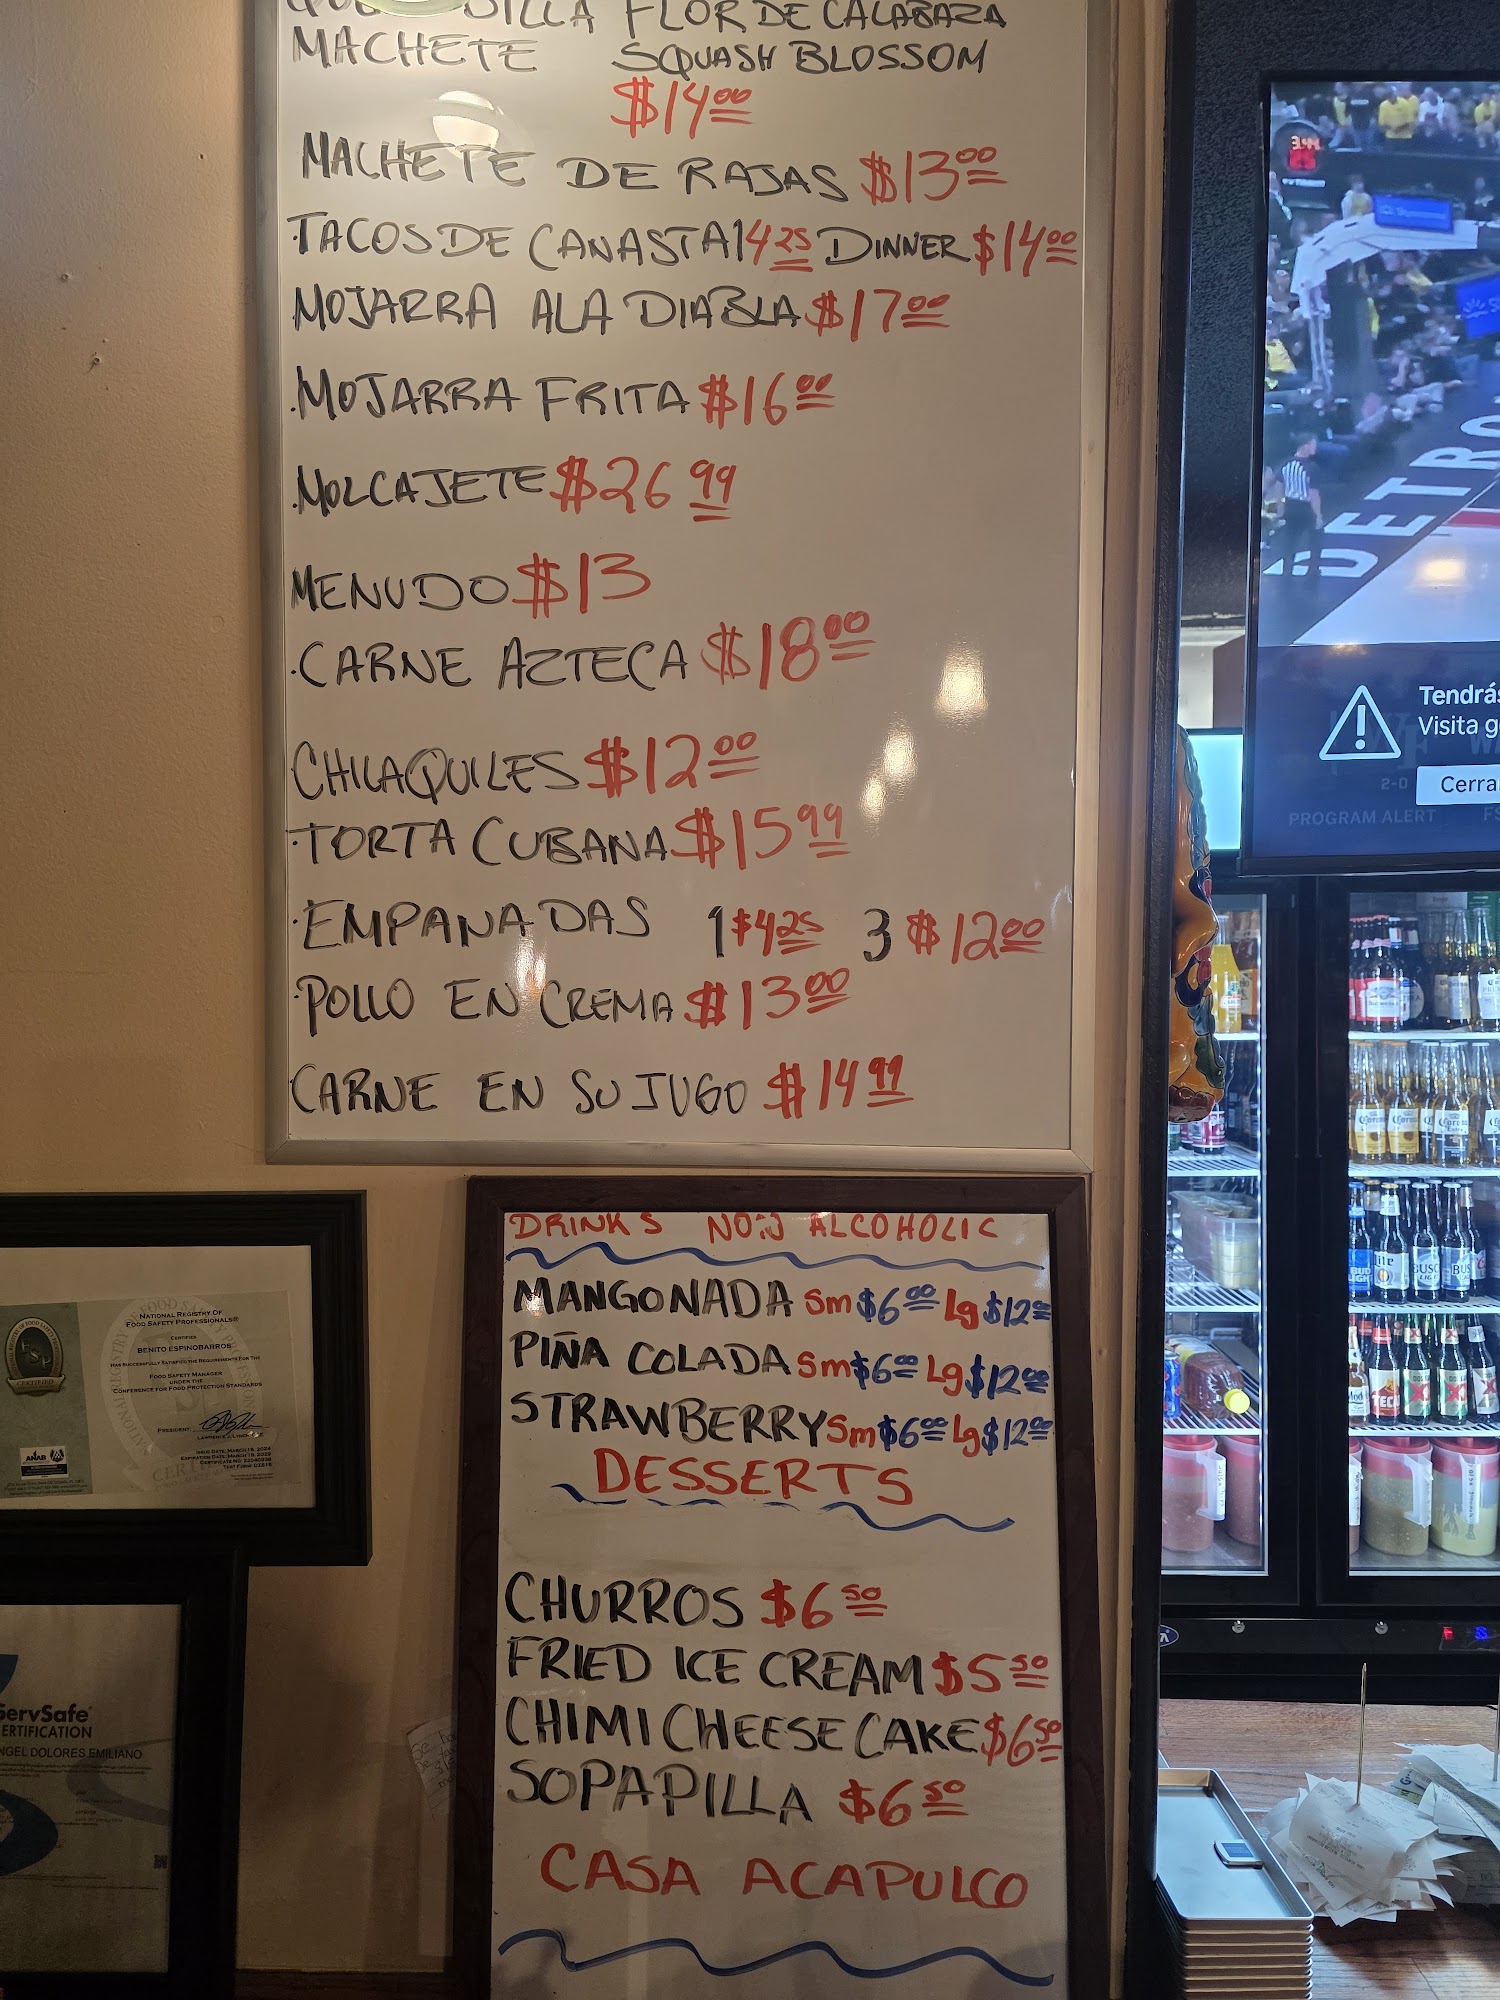 FLOR DE CALABAZA
MACHETE SQUASH BLOSSOM
$14.00
MACHETE DE RAJAS $13.00
·TACOS DE CANASTA 1 4.25 DINNER $14.00
MOJARRA ALA DIABLA $17.00
·MOJARRA FRITA $16.00
·MOLCAJETE $26.99
MENUDO $13
·CARNE AZTECA $18.00
CHILAQUILES $12.00
·TORTA CUBANA $15.99
·EMPANADAS 1 $4.25 3 $12.00
·POLLO EN CREMA $13.00
CARNE EN SU JUGO $14.99
DRINKS NON ALCOHOLIC
MANGONADA Sm $6.00 Lg $12.00
PIÑA COLADA Sm $6.00 Lg $12.00
STRAWBERRY Sm $6.00 Lg $12.00
DESSERTS
CHURROS $6.50
FRIED ICE CREAM $5.50
CHIMI CHEESE CAKE $6.50
SOPAPILLA $6.50
CASA ACAPULCO
NATIONAL REGISTRY OF
FOOD SAFETY PROFESSIONALS®
CERTIFIES
BENITO ESPINOBARROS
HAS SUCCESSFULLY SATISFIED THE REQUIREMENTS FOR THE
FOOD SAFETY MANAGER
UNDER THE
CONFERENCE FOR FOOD PROTECTION STANDARDS
PRESIDENT:
ANAB
ServSafe®
CERTIFICATION
NGEL DOLORES EMILIANO
DETRO
Tendrás
Visita g
Cerra
2-0
PROGRAM ALERT
BUD
LIGHT
Lite
BUSC
LIGHT
Corona